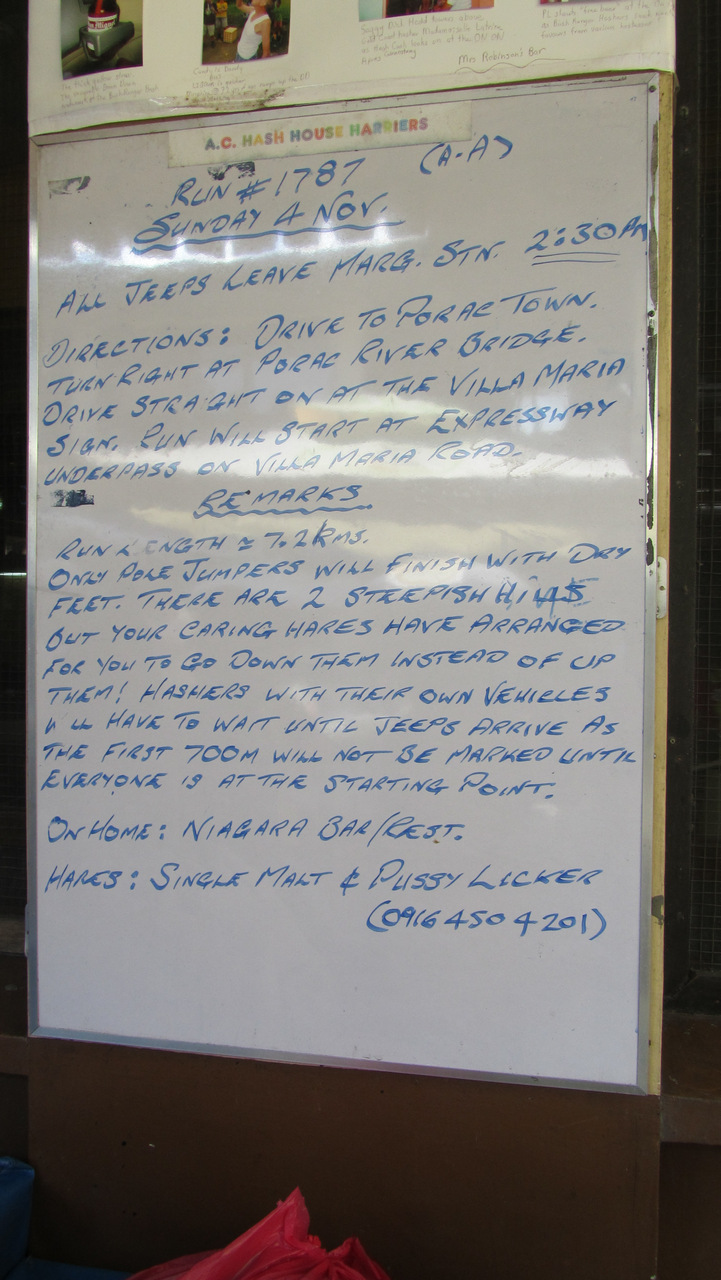 Mrs Robinson's Bar
A.C. HASH HOUSE HARRIERS
RUN # 1787 (A-A)
SUNDAY 4 NOV.
ALL JEEPS LEAVE MARG. STN. 2:30PM
DIRECTIONS: DRIVE TO PORAC TOWN.
TURN RIGHT AT PORAC RIVER BRIDGE.
DRIVE STRAIGHT ON AT THE VILLA MARIA
SIGN. RUN WILL START AT EXPRESSWAY
UNDERPASS ON VILLA MARIA ROAD.
REMARKS
RUN LENGTH ≃ 7.2KMS.
ONLY POLE JUMPERS WILL FINISH WITH DRY
FEET. THERE ARE 2 STEEPISH HILLS
BUT YOUR CARING HARES HAVE ARRANGED
FOR YOU TO GO DOWN THEM INSTEAD OF UP
THEM! HASHERS WITH THEIR OWN VEHICLES
WILL HAVE TO WAIT UNTIL JEEPS ARRIVE AS
THE FIRST 700M WILL NOT BE MARKED UNTIL
EVERYONE IS AT THE STARTING POINT.
ON HOME: NIAGARA BAR/REST.
HARES: SINGLE MALT & PUSSY LICKER
(0916 450 4201)